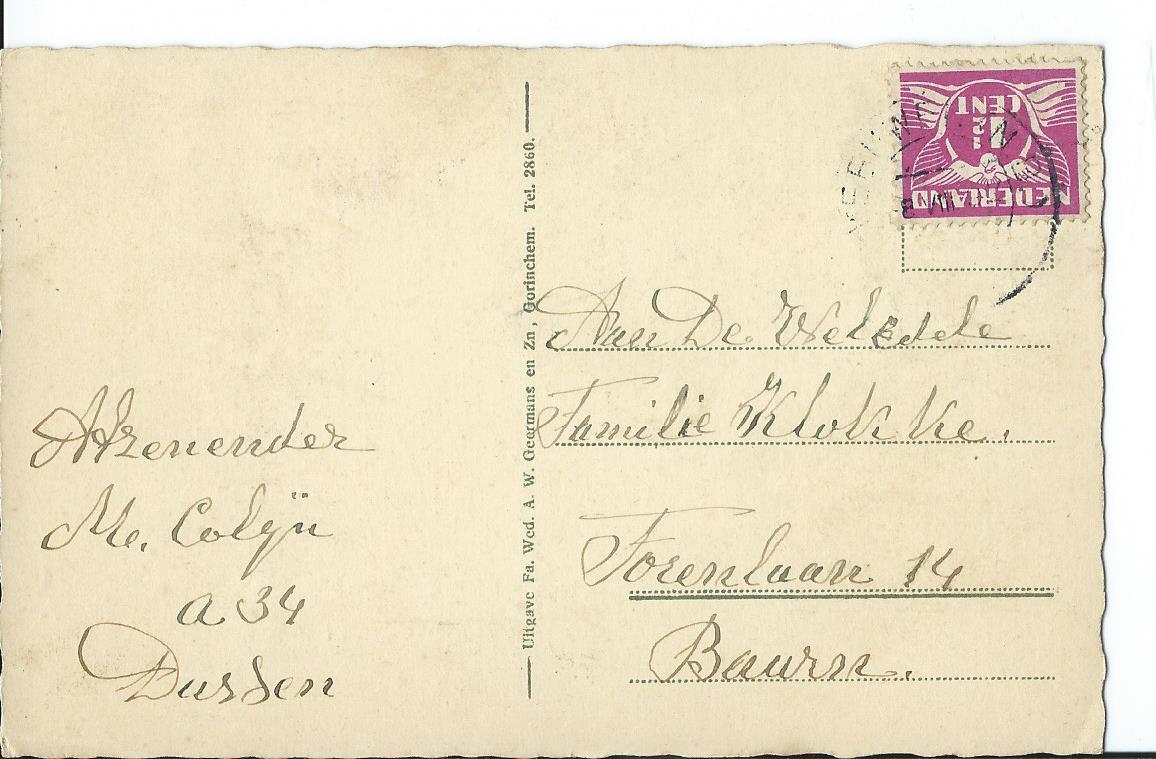 Afzenender
Me. Colijn
a 34
Dussen
Uitgave Fa. Wed. A. W. Geermans en Zn, Gorinchem. Tel. 2860.
NEDERLAND
1½
CENT
Aan De WelEdele
Familie Klokke.
Torenlaan 14
Baarn.